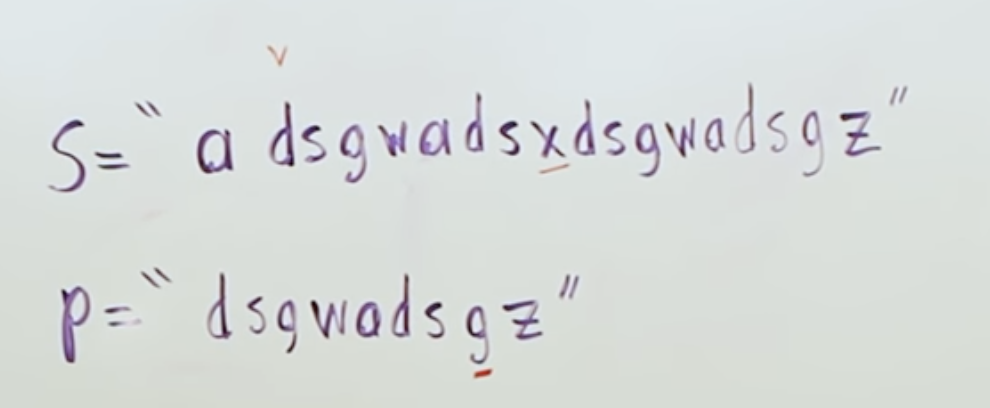 v
S= “ a dsgwadsxdsgwadsgz ”
p= “ dsgwadsgz ”